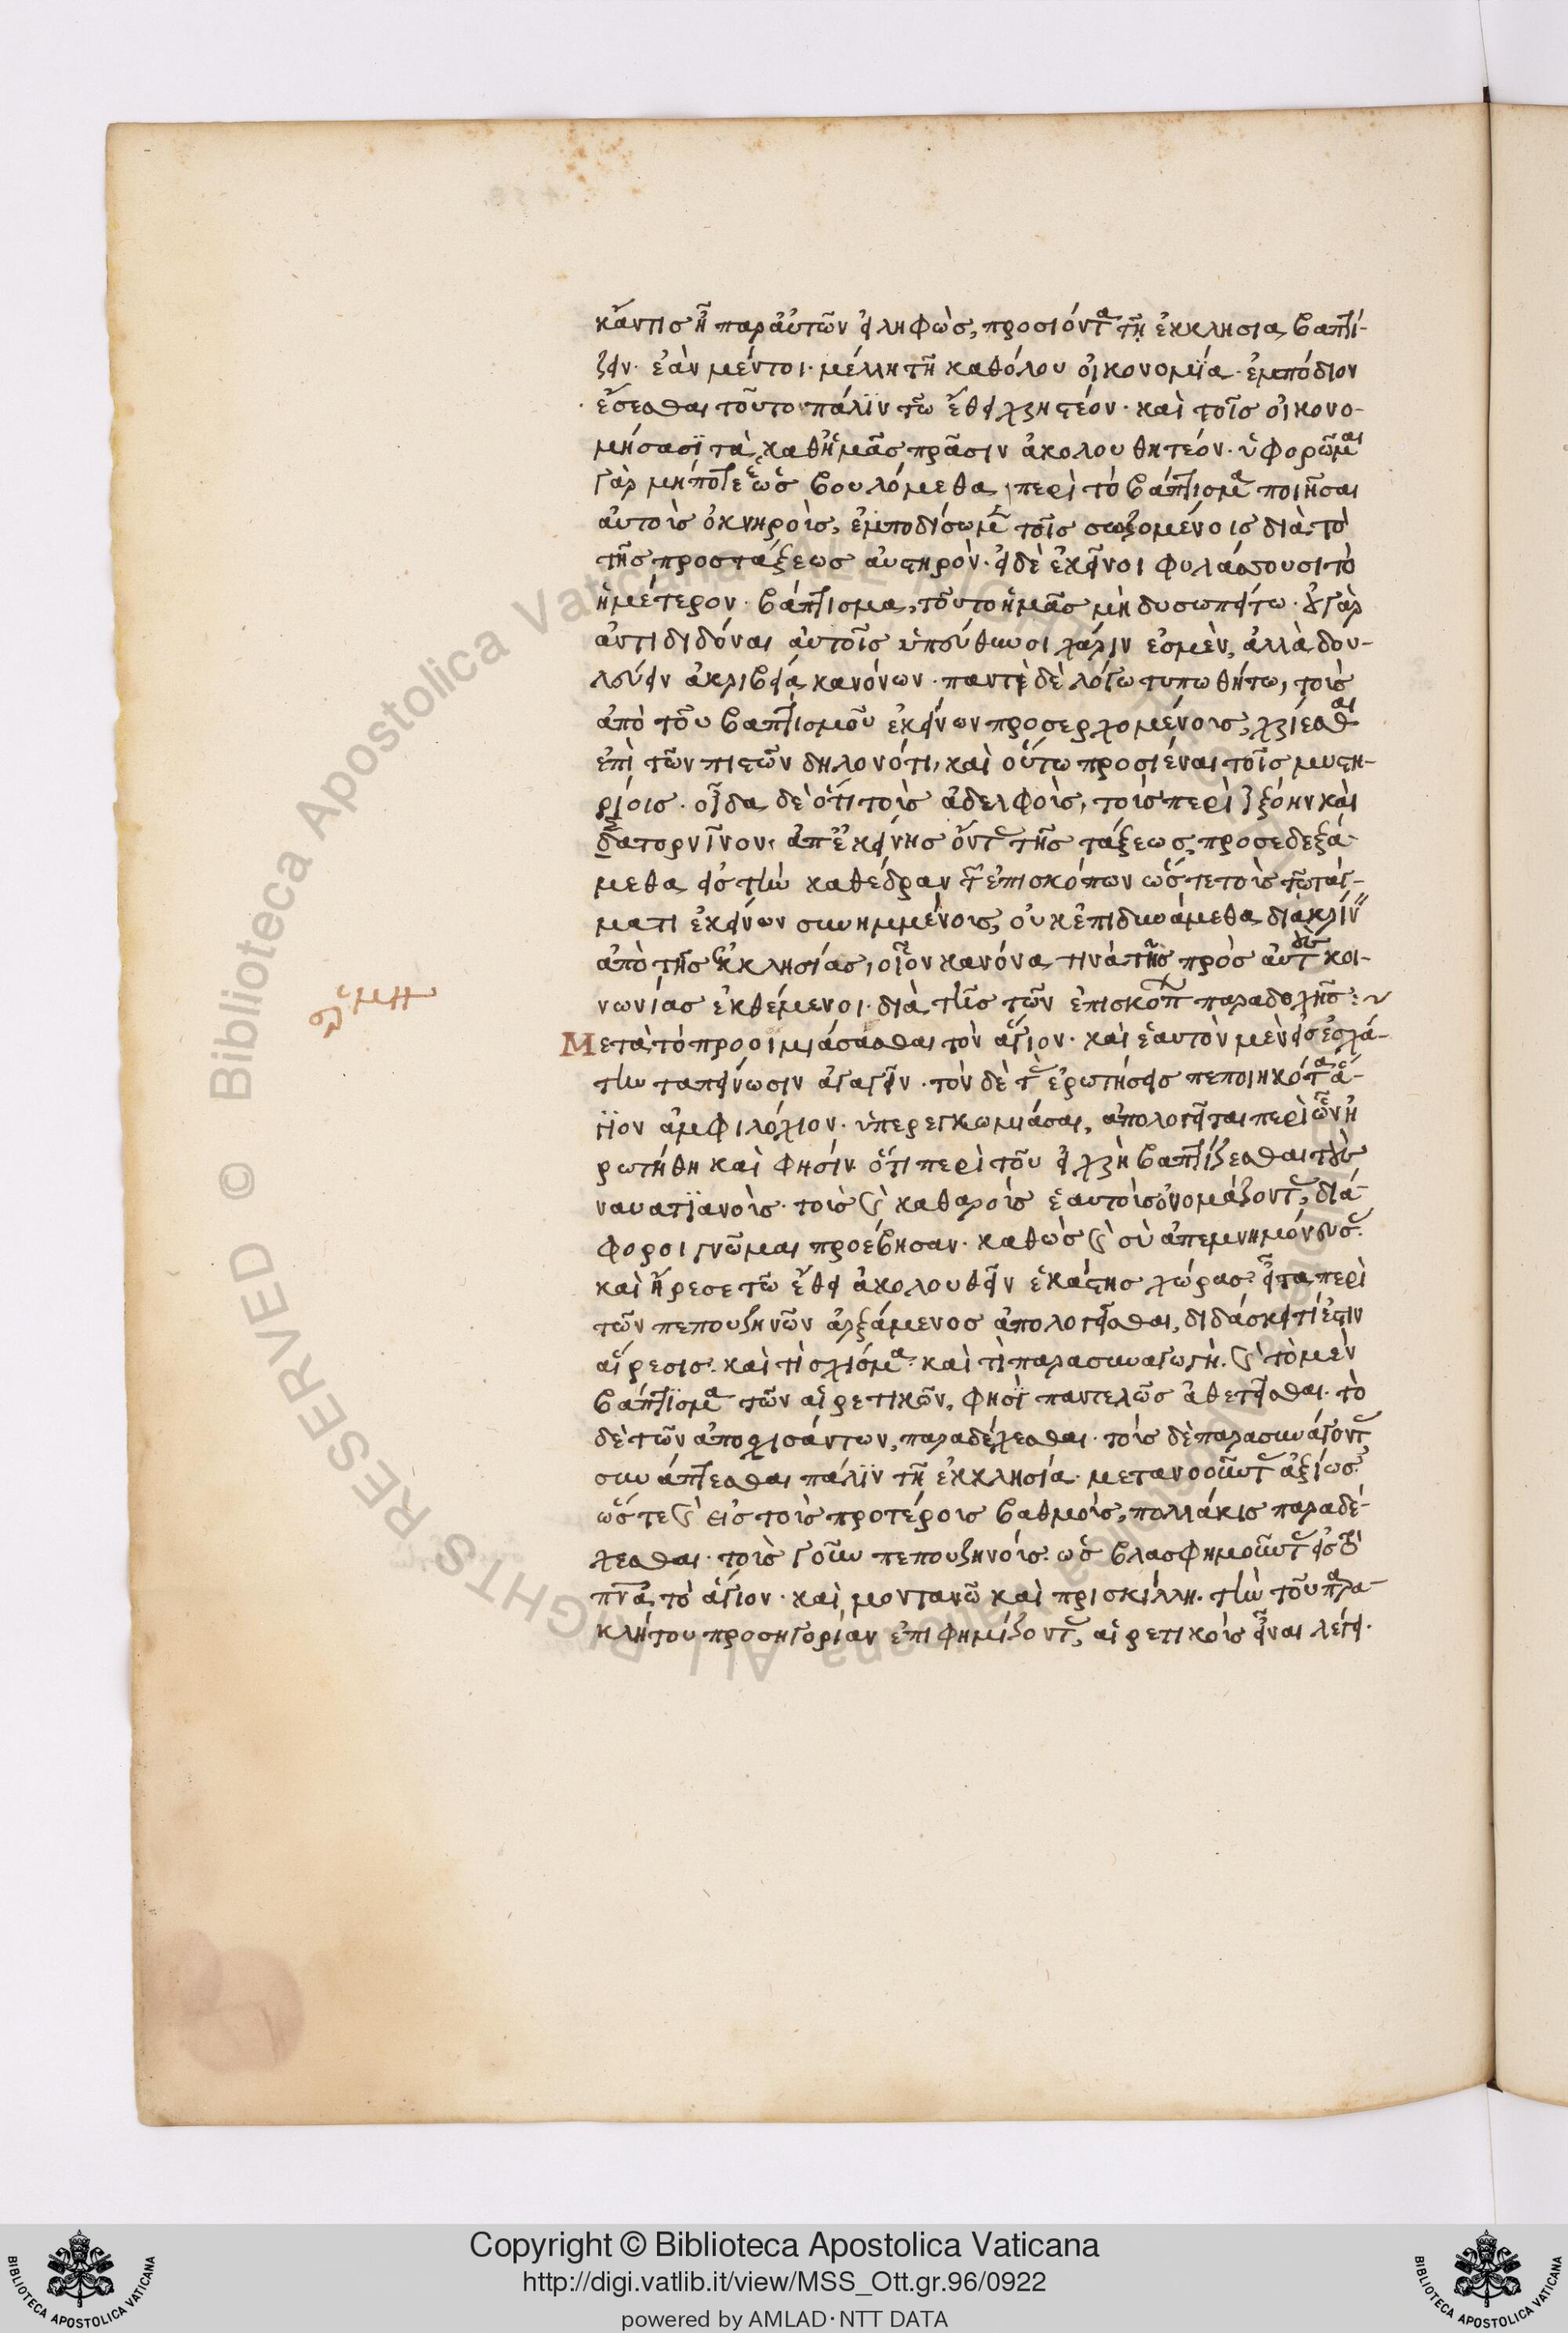 κἄν τις ᾖ παρ' αὐτῶν εἰληφὼς, προσιόντα τῇ ἐκκλησία βαπτί-
ζειν· ἐὰν μέντοι· μέλλη τῆ καθόλου οἰκονομΐα· ἐμπόδιον
ἔσεσθαι τοῦτο· πάλϊν τῶ ἔθει χρηστέον· καὶ τοῖς οἰκονο-
μήσασϊ τὰ καθ' ἡμᾶς πρᾶσιν ἀκολουθητέον· ὑφορῶμαι
γὰρ μήποτε ὡς βουλόμεθα περὶ τὸ βάπτισμα ποιῆσαι
αὐτοὺς ὀκνηροὺς, ἐμποδίσωμεν τοῖς σωζομένοις διὰ τὸ
τῆς προστάξεως αὐστηρόν· εἰ δὲ ἐκεῖνοι φυλάσσουσι τὸ
ἡμέτερον· βάπτισμα, τοῦτο ἡμᾶς μὴ δυσωπείτω· οὐ γὰρ
ἀντιδιδόναι αὐτοῖς ὑπεύθυνοι χάριν ἐσμὲν, ἀλλὰ δου-
λεύειν ἀκριβείᾳ κανόνων· παντὶ δὲ λόγω τυπωθήτω, τοὺς
ἀπὸ τοῦ βαπτισμοῦ ἐκείνων προσερχομένους, χρίεσθαι
ἐπὶ τῶν πιστῶν δηλονότι, καὶ οὕτω προσιέναι τοῖς μυστη-
ρίοις· οἶδα δὲ ὅτι τοὺς ἀδελφοὺς, τοὺς περὶ ἰξόην καὶ
σατορνῖνον, ἀπ' ἐκείνης ὄντας τῆς τάξεως, προσεδεξά-
μεθα εἰς τὴν καθέδραν τῶν ἐπισκόπων ὥστε τοὺς τῶ τάγ-
ματι ἐκείνων συνημμένους, οὐκ ἐπιδυνάμεθα διακρίνειν
ἀπὸ τῆς ἐκκλησίας, οἷον κανόνα τινὰ τῆς πρὸς αὐτοὺς κοι-
νωνίας ἐκθέμενοι· διὰ τῆς τῶν ἐπισκόπων παραδοχῆς:~
Μετὰ τὸ προοιμιάσασθαι τὸν ἅγιον· καὶ ἑαυτὸν μὲν εἰς ἐσχά-
την ταπείνωσιν ἀγαγεῖν· τὸν δὲ τὰς ἐρωτήσεις πεποιηκότα ἅ-
γϊον ἀμφιλόχιον· ὑπερεγκωμιάσαι, ἀπολογεῖται περὶ ὧν ἠ
ρωτήθη καὶ φησίν· ὅτι περὶ τοῦ εἰ χρὴ βαπτίζεσθαι τοὺς
ναυατϊανοὺς· τοὺς καὶ καθαροὺς ἑαυτοὺς ὀνομάζοντας, διά-
φοροι γνῶμαι προέβησαν· καθὼς καὶ σὺ ἀπεμνημόνευσας·
καὶ ἤρεσε τῶ ἔθει ἀκολουθεῖν ἑκάστης χώρας· εἶτα περὶ
τῶν πεπουζηνῶν ἀρξάμενος ἀπολογεῖσθαι, διδάσκει τί ἐστιν
αἵρεσις· καὶ τὶ σχίσμα· καὶ τὶ παρασυναγωγή· καὶ τὸ μὲν
βάπτϊσμα τῶν αἱρετικῶν, φησϊ παντελῶς ἀθετεῖσθαι· τὸ
δὲ τῶν ἀποσχισάντων, παραδέχεσθαι· τοὺς δὲ παρασυνάγοντας
συνάπτεσθαι πάλϊν τῆ ἐκκλησία· μετανοοῦντας ἀξίως·
ὥστε καὶ εἰς τοὺς προτέρους βαθμοὺς, πολλάκις παραδέ-
χεσθαι· τοὺς γοῦν πεπουζηνούς· ὡς βλασφημοῦντας εἰς τὸ
πνα τὸ ἅγιον· καὶ μοντανῶ καὶ πρισκίλλη· τὴν τοῦ παρα-
κλήτου προσηγορίαν ἐπιφημίζοντας, αἱρετικοὺς εἶναι λέγει·
Copyright © Biblioteca Apostolica Vaticana
http://digi.vatlib.it/view/MSS_Ott.gr.96/0922
powered by AMLAD·NTT DATA
BIBLIOTECA APOSTOLICA VATICANA
BIBLIOTECA APOSTOLICA VATICANA
Biblioteca Apostolica Vaticana ALL RIGHTS RESERVED ©